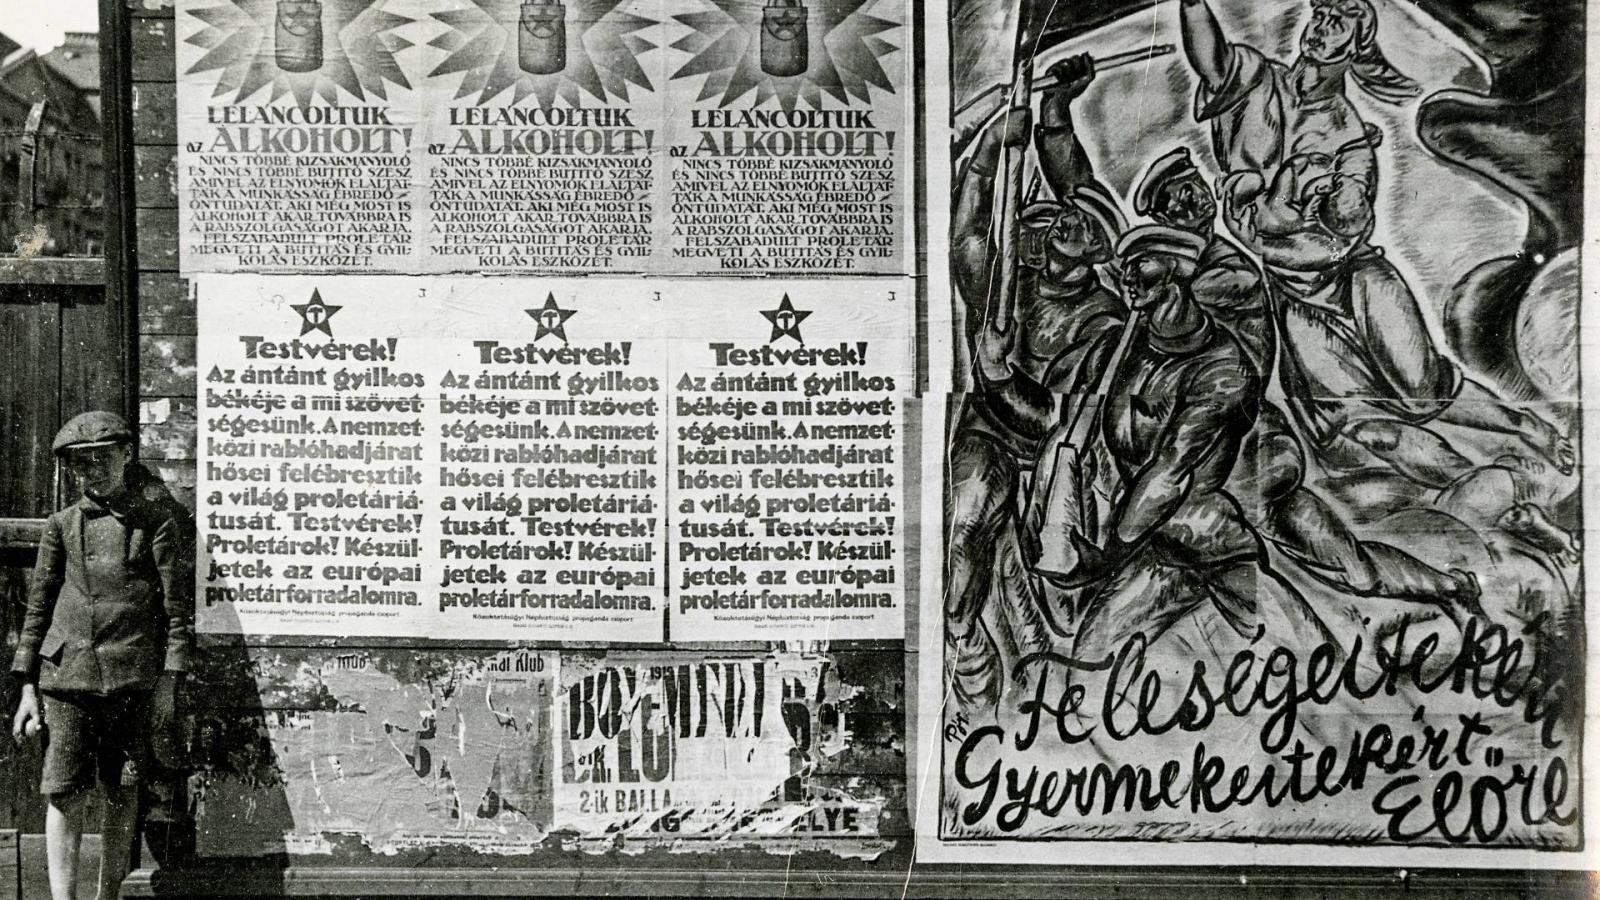 LELÁNCOLTUK
az ALKOHOLT!
NINCS TÖBBÉ KIZSÁKMÁNYOLÓ
ÉS NINCS TÖBBÉ BUTITÓ SZESZ,
AMIVEL AZ ELNYOMÓK ELALTAT-
TÁK A MUNKÁSSÁG ÉBREDŐ
ÖNTUDATÁT. AKI MÉG MOST IS
ALKOHOLT AKAR, TOVÁBBRA IS
A RABSZOLGASÁGOT AKARJA.
FELSZABADULT PROLETÁR
MEGVETI A BUTITÁS ÉS GYIL-
KOLÁS ESZKÖZÉT.
LELÁNCOLTUK
az ALKOHOLT!
NINCS TÖBBÉ KIZSÁKMÁNYOLÓ
ÉS NINCS TÖBBÉ BUTITÓ SZESZ,
AMIVEL AZ ELNYOMÓK ELALTAT-
TÁK A MUNKÁSSÁG ÉBREDŐ
ÖNTUDATÁT. AKI MÉG MOST IS
ALKOHOLT AKAR, TOVÁBBRA IS
A RABSZOLGASÁGOT AKARJA.
FELSZABADULT PROLETÁR
MEGVETI A BUTITÁS ÉS GYIL-
KOLÁS ESZKÖZÉT.
LELÁNCOLTUK
az ALKOHOLT!
NINCS TÖBBÉ KIZSÁKMÁNYOLÓ
ÉS NINCS TÖBBÉ BUTITÓ SZESZ,
AMIVEL AZ ELNYOMÓK ELALTAT-
TÁK A MUNKÁSSÁG ÉBREDŐ
ÖNTUDATÁT. AKI MÉG MOST IS
ALKOHOLT AKAR, TOVÁBBRA IS
A RABSZOLGASÁGOT AKARJA.
FELSZABADULT PROLETÁR
MEGVETI A BUTITÁS ÉS GYIL-
KOLÁS ESZKÖZÉT.
Testvérek!
Az ántánt gyilkos
békéje a mi szövet-
ségesünk. A nemzet-
közi rablóhadjárat
hősei felébresztik
a világ proletáriá-
tusát. Testvérek!
Proletárok! Készül-
jetek az európai
proletárforradalomra.
Közoktatásügyi Népbiztosság propaganda csoport
Testvérek!
Az ántánt gyilkos
békéje a mi szövet-
ségesünk. A nemzet-
közi rablóhadjárat
hősei felébresztik
a világ proletáriá-
tusát. Testvérek!
Proletárok! Készül-
jetek az európai
proletárforradalomra.
Közoktatásügyi Népbiztosság propaganda csoport
Testvérek!
Az ántánt gyilkos
békéje a mi szövet-
ségesünk. A nemzet-
közi rablóhadjárat
hősei felébresztik
a világ proletáriá-
tusát. Testvérek!
Proletárok! Készül-
jetek az európai
proletárforradalomra.
Közoktatásügyi Népbiztosság propaganda csoport
Klub
Klub
1919
2-ik
Feleségeitekért
Gyermekeitekért
Előre